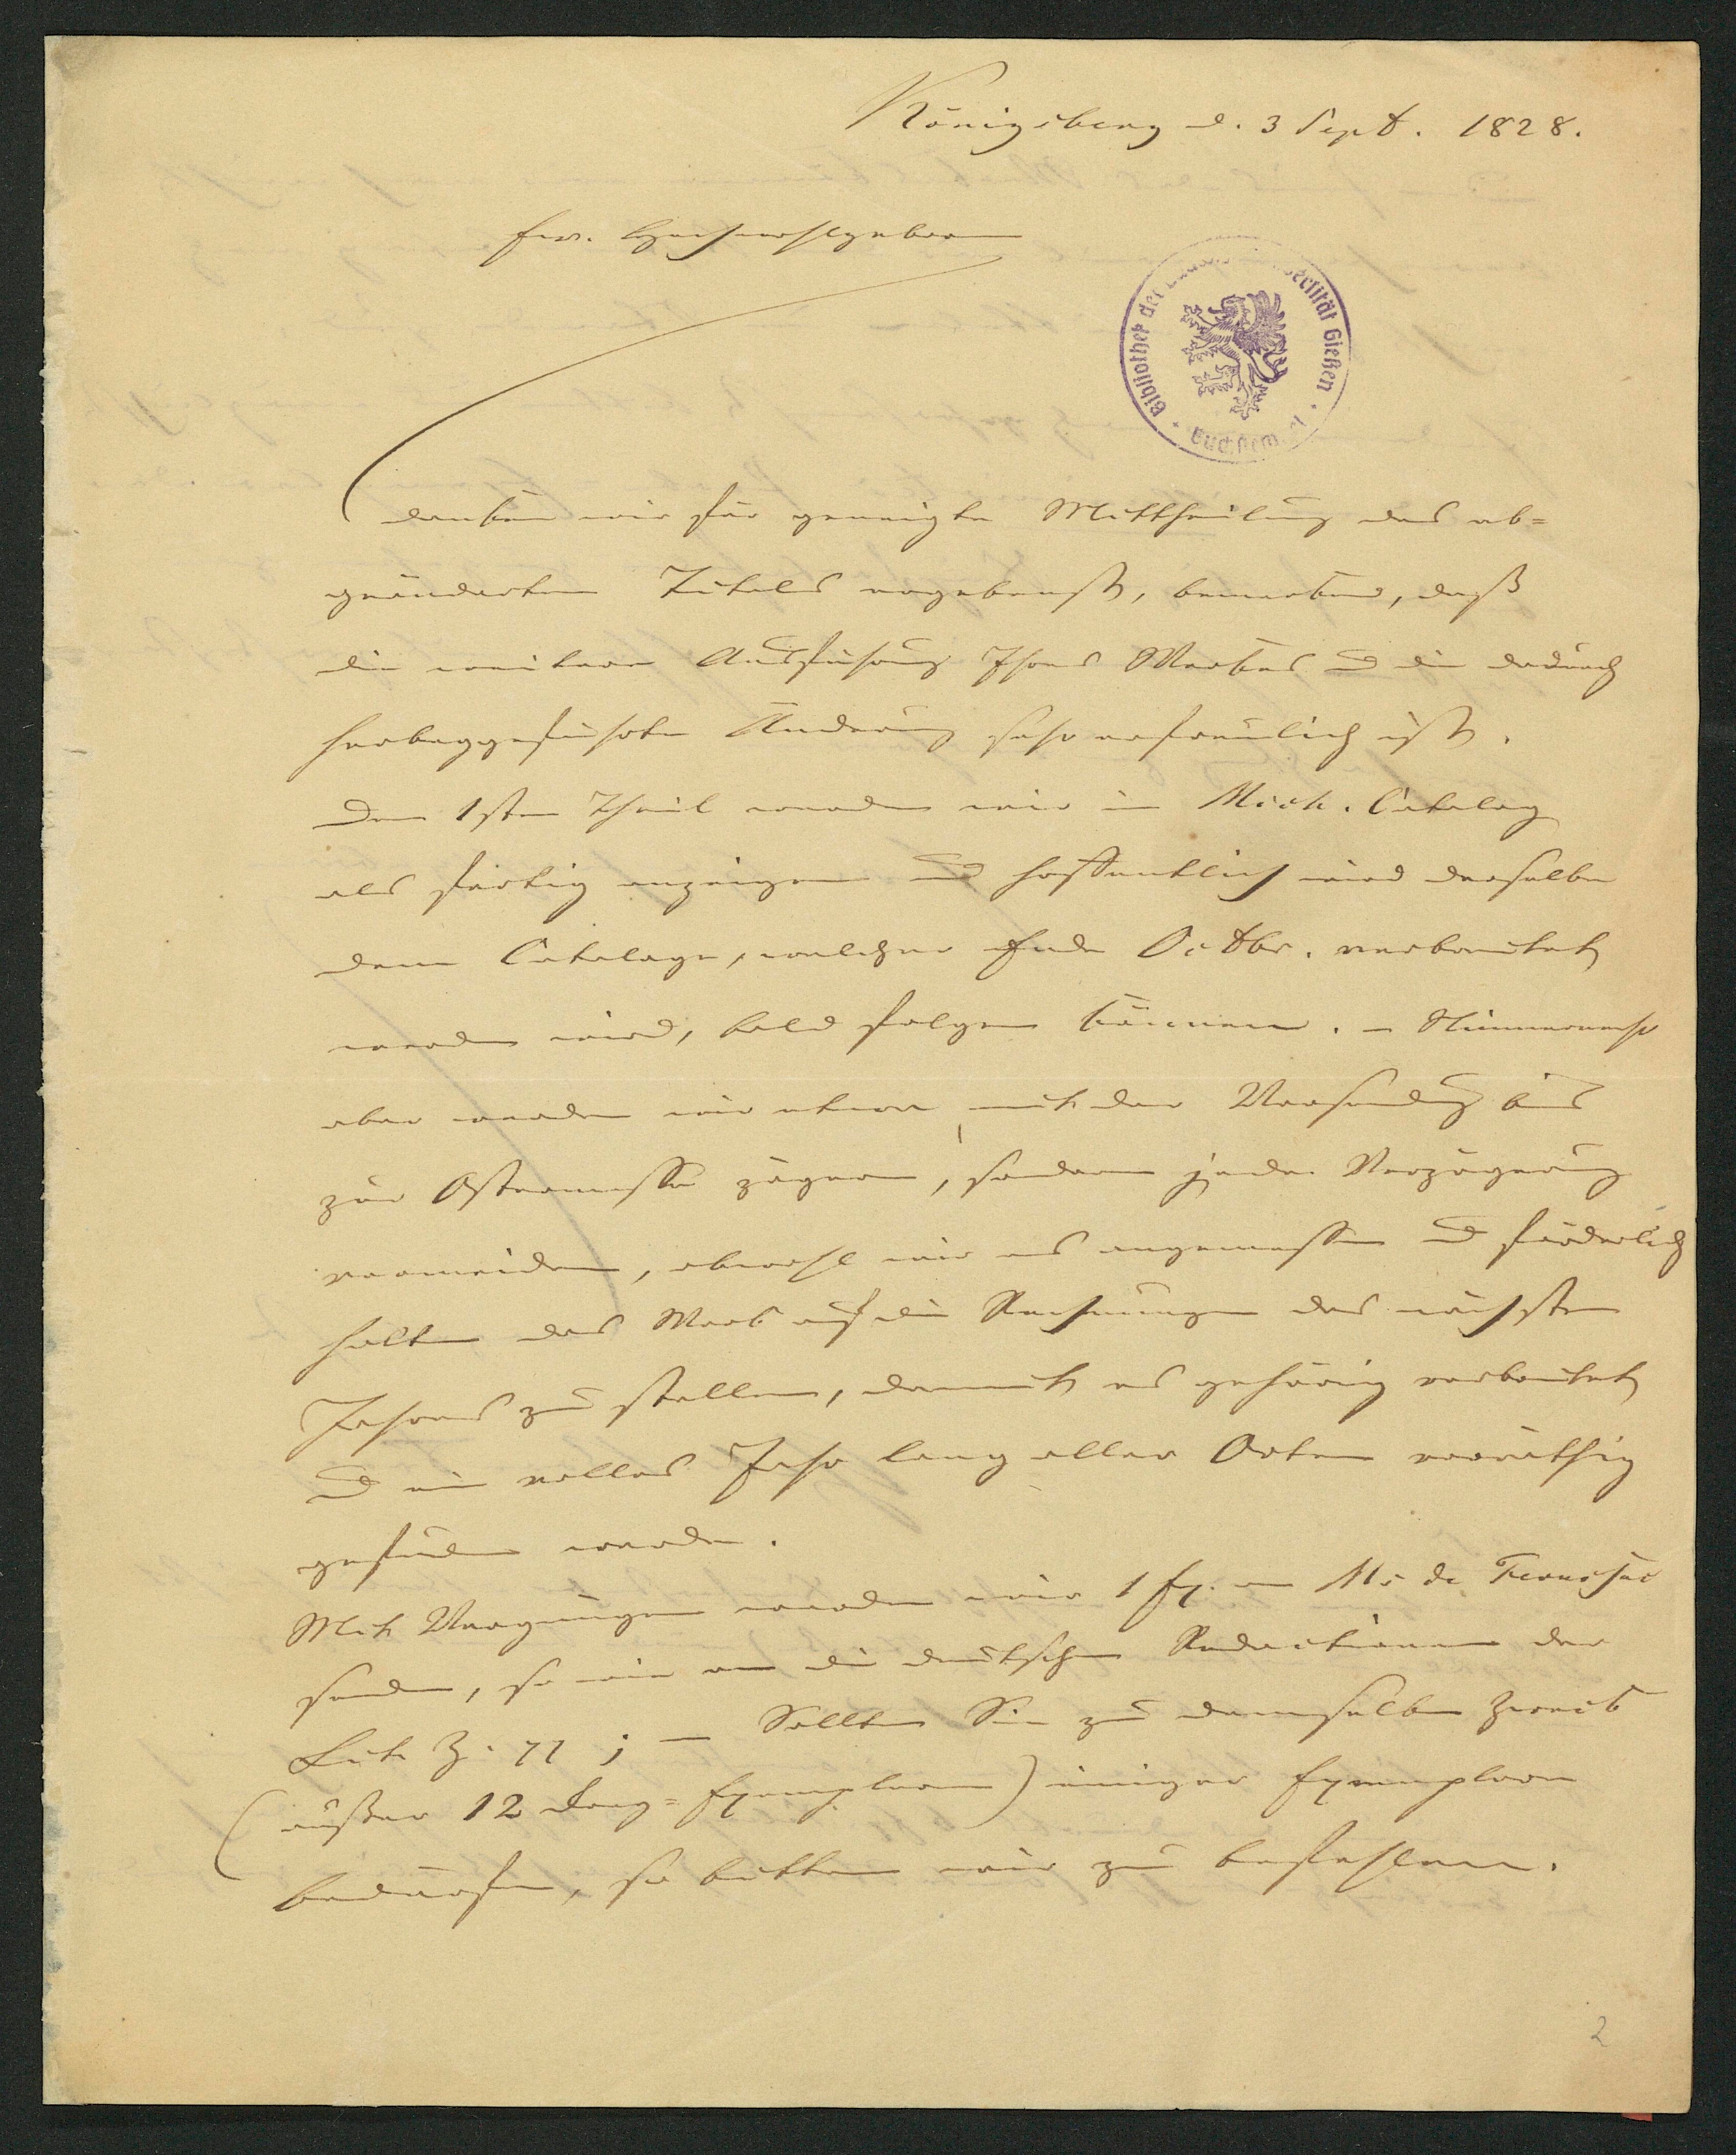 Königsberg d. 3 Sept. 1828.
Ew. Hochwohlgeboren
Bibliothek der Ludwigs-Universität Gießen
danken wir für geneigte Mittheilung des ab=
geänderten Titels ergebenst, bemerkend, daß
die weitere Ausführung Ihres Werkes u die dadurch
herbeygeführte Änderung sehr erfreulich ist.
Den 1sten Theil werden wir im Mich. Catalog
als fertig anzeigen und hoffentlich wird derselbe
dem Cataloge, welcher Ende Octbr. verbreitet
werden wird, bald folgen können. – Nimmermehr
aber werden wir etwa mit der Versendung bis
zur Ostermesse zögern, sondern jede Verzögerung
vermeiden, obwohl wir es angemessen u förderlich
halten das Werk auf die Rechnungen des nächsten
Jahres zu stellen, damit es gehörig verbreitet
u ein volles Jahr lang aller Orten vorräthig
gefunden werde.
Mit Vergnügen werden wir 1 Ex. an Mr de Ferussac
senden, so wie an die deutschen Redactionen der
Lit. Z. ; — Sollten Sie zu demselben Zweck
(außer 12 Exemplaren) einiger Exemplare
bedürfen, so bitten wir zu befehlen.
2